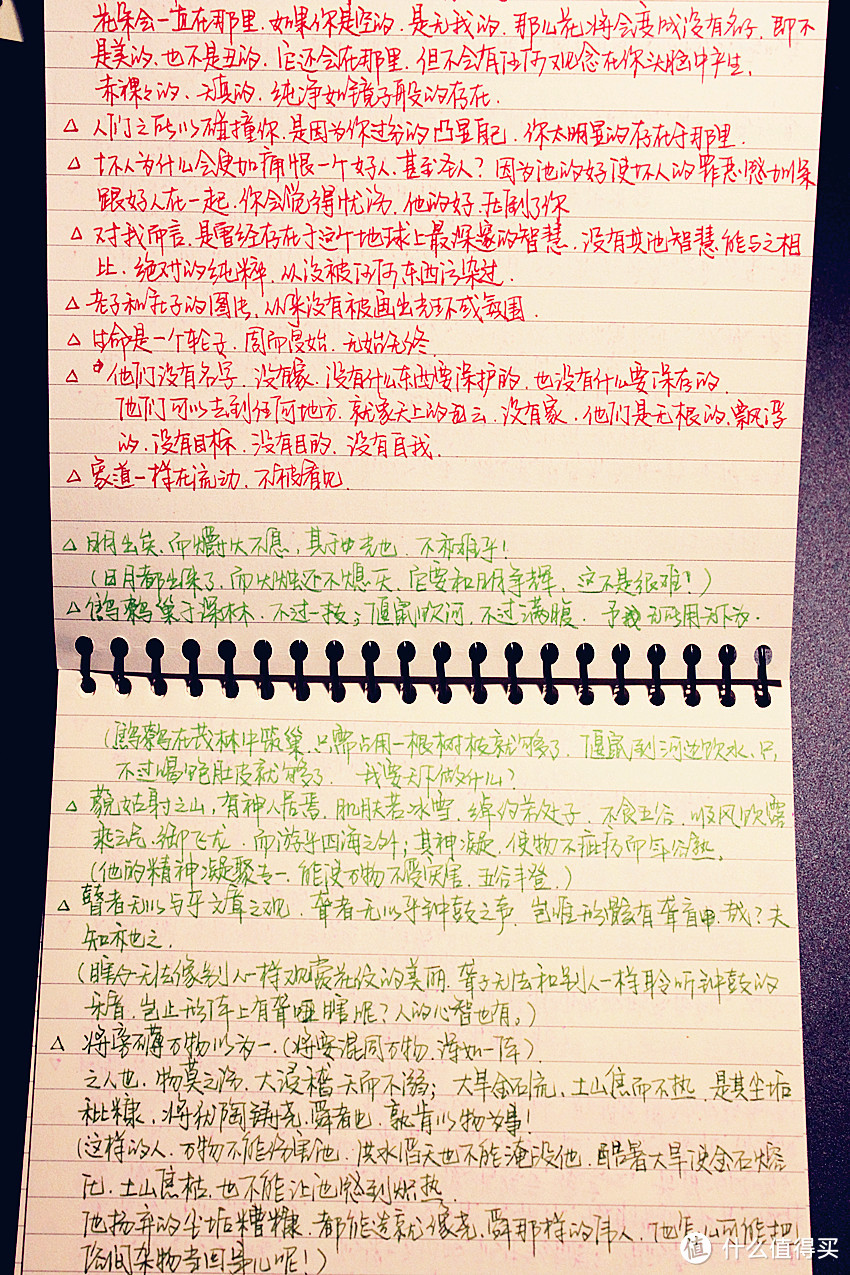 花朵会一直在那里.如果你是空的.是无我的.那么花将会变成没有名字.即不
是美的.也不是丑的.它还会在那里.但不会有任何观念在你头脑中产生.
赤裸々的.天真的.纯净如镜子般的存在.
△ 人们之所以碰撞你.是因为你过分的凸显自己.你太明显的存在于那里.
△ 坏人为什么会更加痛恨一个好人.甚至圣人?因为他的好使坏人的罪恶感加深
跟好人在一起.你会觉得忧伤.他的好.压倒了你
△ 对我而言.是曾经存在于这个地球上最深邃的智慧.没有其他智慧能与之相
比.绝对的纯粹.从没被任何东西污染过.
△ 老子和庄子的图片,从来没有被画出光环或氛围.
△ 生命是一个轮子.周而复始.无始无终
△ 他们没有名字.没有家.没有什么东西要保护的.也没有什么要保存的.
他们可以去到任何地方.就象天上的白云.没有家.他们是无根的.飘浮
的.没有目标.没有目的.没有自我.
△ 象道一样在流动.不被看见
△ 日月出矣.而爝火不息,其于光也.不亦难乎!
(日月都出来了.而火烛还不熄灭.它要和日月争辉.这不是很难!)
△ 鹪鹩巢于深林.不过一枝;偃鼠饮河,不过满腹.予我无所用天下为.
(鹪鹩在茂林中筑巢.只需占用一根树枝就够了.偃鼠到河边饮水.只
不过喝饱肚皮就够了.我要天下做什么?
△ 藐姑射之山,有神人居焉.肌肤若冰雪.绰约若处子.不食五谷.吸风饮露
乘云气.御飞龙.而游乎四海之外;其神凝.使物不疵疠而年谷熟.
(他的精神凝聚专一.能使万物不受灾害.五谷丰登.)
△ 瞽者无以与乎文章之观.聋者无以乎钟鼓之声.岂唯形骸有聋盲哉?夫
知亦也之.
(瞎子无法像别人一样观赏花纹的美丽.聋子无法和别人一样聆听钟鼓的
乐音.岂止形体上有聋哑瞎呢?人的心智也有。)
△ 将旁礴万物以为一.(将要混同万物.浑如一体).
之人也.物莫之伤.大浸稽天而不溺;大旱金石流.土山焦而不热.是其尘垢
秕糠.将犹陶铸尧.舜者也.孰肯以物为事!
(这样的人.万物不能伤害他.洪水滔天也不能淹没他.酷暑大旱使金石熔
化.土山焦枯.也不能让他感到炽热.
他扬弃的尘垢糟糠.都能造就像尧.舜那样的伟人.他怎么可能把
俗间杂物当回事儿呢!)
值 什么值得买